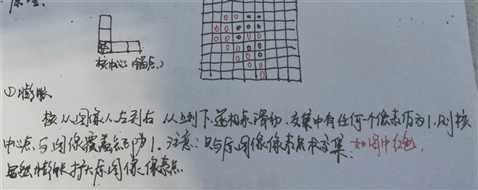 原理:
核中心(锚点)
①膨胀
核从图像从左到右 从上到下,逐相素滑动,交集中有任何一个像素均为1,则核
中心点与图像覆盖点为1. 注意:只与原图像像素点求交集. 如图中红色
膨胀扩大原图像像素点